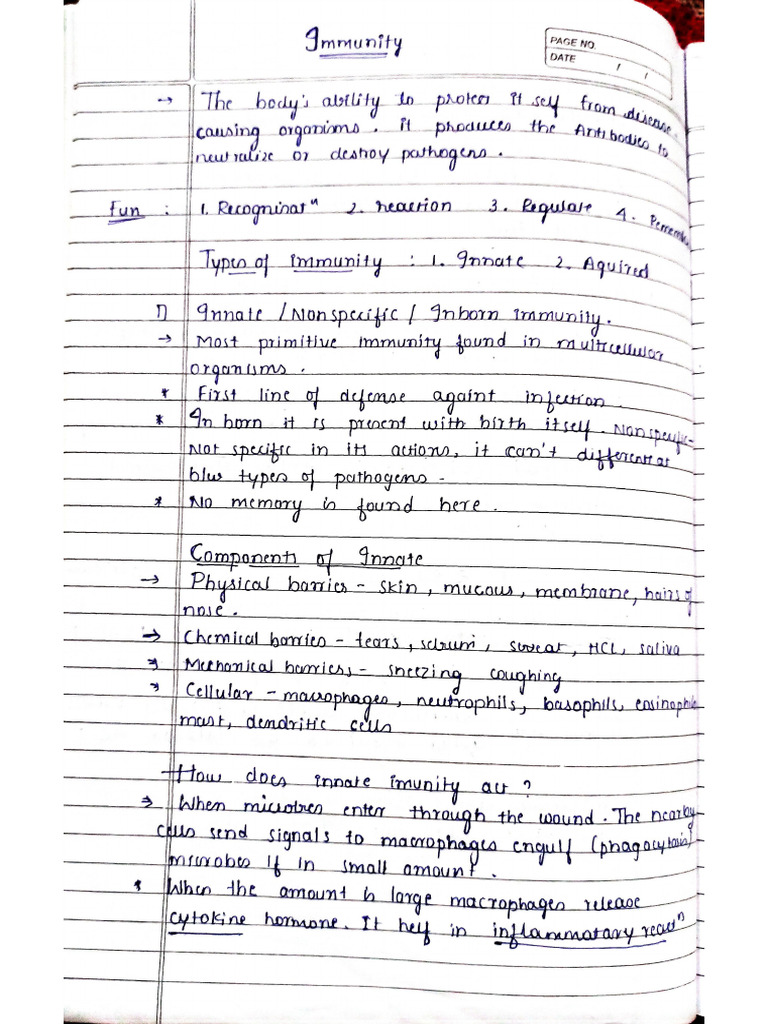 Immunity
PAGE NO.
DATE / /
→ The body's ability to protect it self from disease
causing organisms. it produces the Antibodies to
neutralize or destroy pathogens.
Fun : 1. Recogninatⁿ 2. reaction 3. Regulate 4. Remember
Types of immunity : 1. Innate 2. Aquired
1) Innate / Nonspecific / Inborn immunity.
→ Most primitive immunity found in multicellular
organisms.
* First line of defense againt infection.
* In born it is present with birth itself. Nonspecific-
Not specific in its actions, it can't differentiat
b/w types of pathogens -
* No memory is found here.
Components of Innate
→ Physical barries - skin, mucous, membrane, hairs of
nose.
→ Chemical barries - tears, sebum, sweat, HCL, saliva
→ Mechanical barriers - sneezing coughing
→ Cellular - macrophages, neutrophils, basophils, eosinophils
mast, dendritic cells
How does innate imunity act ?
⇒ When microbes enter through the wound. The nearby
cells send signals to macrophages engulf (phagocytosis)
microbes if in small amount.
* When the amount is large macrophages release
cytokine hormone. It help in inflammatary reactⁿ